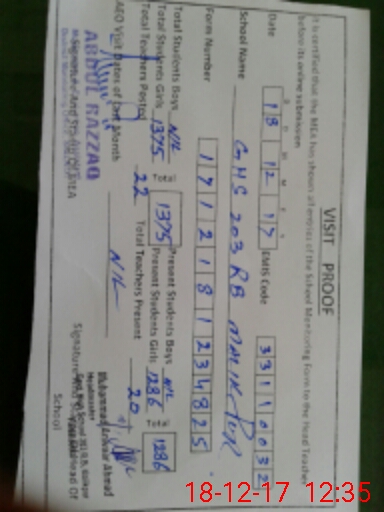 VISIT PROOF
It is certified that the MEA has shown all entries of the School Monitoring Form to the Head Teacher
before its online submission
Date 18 12 17 EMIS Code 33110032
School Name GHS 203 RB
Form Number 1712181234825
Total Students Boys NIL Total 1375 Present Students Boys NIL Total 1286
Total Students Girls 1375 Present Students Girls 1286
Total Teachers Posted 22 Total Teachers Present 20
AEO Visit Dates of Last Month NIL
ABDUL RAZZAQ
Signature And Stamp Of MEA
Muhammad Ahmad
Headmaster
Signature Head Of
School
18-12-17 12:35